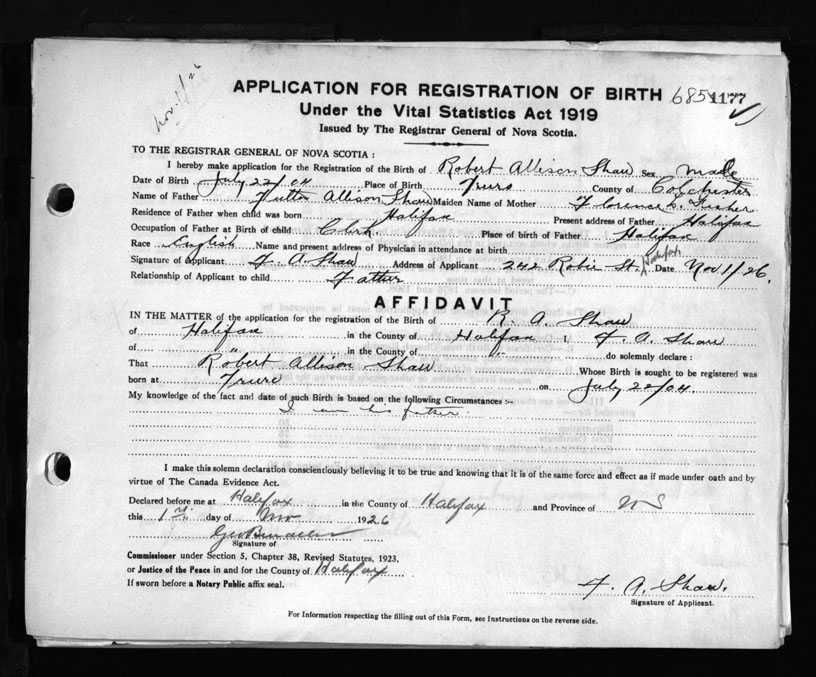 Nov. 1/26
APPLICATION FOR REGISTRATION OF BIRTH 685 1177
Under the Vital Statistics Act 1919
Issued by The Registrar General of Nova Scotia.
TO THE REGISTRAR GENERAL OF NOVA SCOTIA :
I hereby make application for the Registration of the Birth of Robert Allison Shaw Sex Male
Date of Birth July 22/04 Place of Birth Truro County of Colchester
Name of Father Futton Allison Shaw Maiden Name of Mother Florence L. Fisher
Residence of Father when child was born Halifax Present address of Father Halifax
Occupation of Father at Birth of child Clerk Place of birth of Father Halifax
Race English Name and present address of Physician in attendance at birth
Signature of Applicant F. A. Shaw Address of Applicant 242 Robie St. Halifax Date Nov 1/26.
Relationship of Applicant to child Father
AFFIDAVIT
IN THE MATTER of the application for the registration of the Birth of R. A. Shaw
of Halifax in the County of Halifax I, F. A. Shaw
of " in the County of " do solemnly declare :
That Robert Allison Shaw Whose Birth is sought to be registered was
born at Truro on July 22/04.
My knowledge of the fact and date of such Birth is based on the following Circumstances :-
I am his father.
I make this solemn declaration conscientiously believing it to be true and knowing that it is of the same force and effect as if made under oath and by
virtue of The Canada Evidence Act.
Declared before me at Halifax in the County of Halifax and Province of N S
this 1st day of Nov 1926
Signature of
Commissioner under Section 5, Chapter 38, Revised Statutes, 1923,
or Justice of the Peace in and for the County of Halifax
If sworn before a Notary Public affix seal.
F. A. Shaw.
Signature of Applicant.
For Information respecting the filling out of this Form, see Instructions on the reverse side.